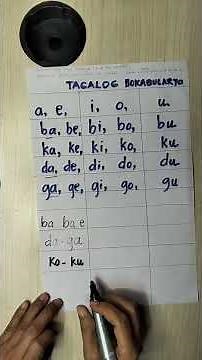 TAGALOG BOKABULARYO
a, e, i, o, u
ba, be, bi, bo, bu
ka, ke, ki, ko, ku
da, de, di, do, du
ga, ge, gi, go, gu
ba ba e
da-ga
ko-ku